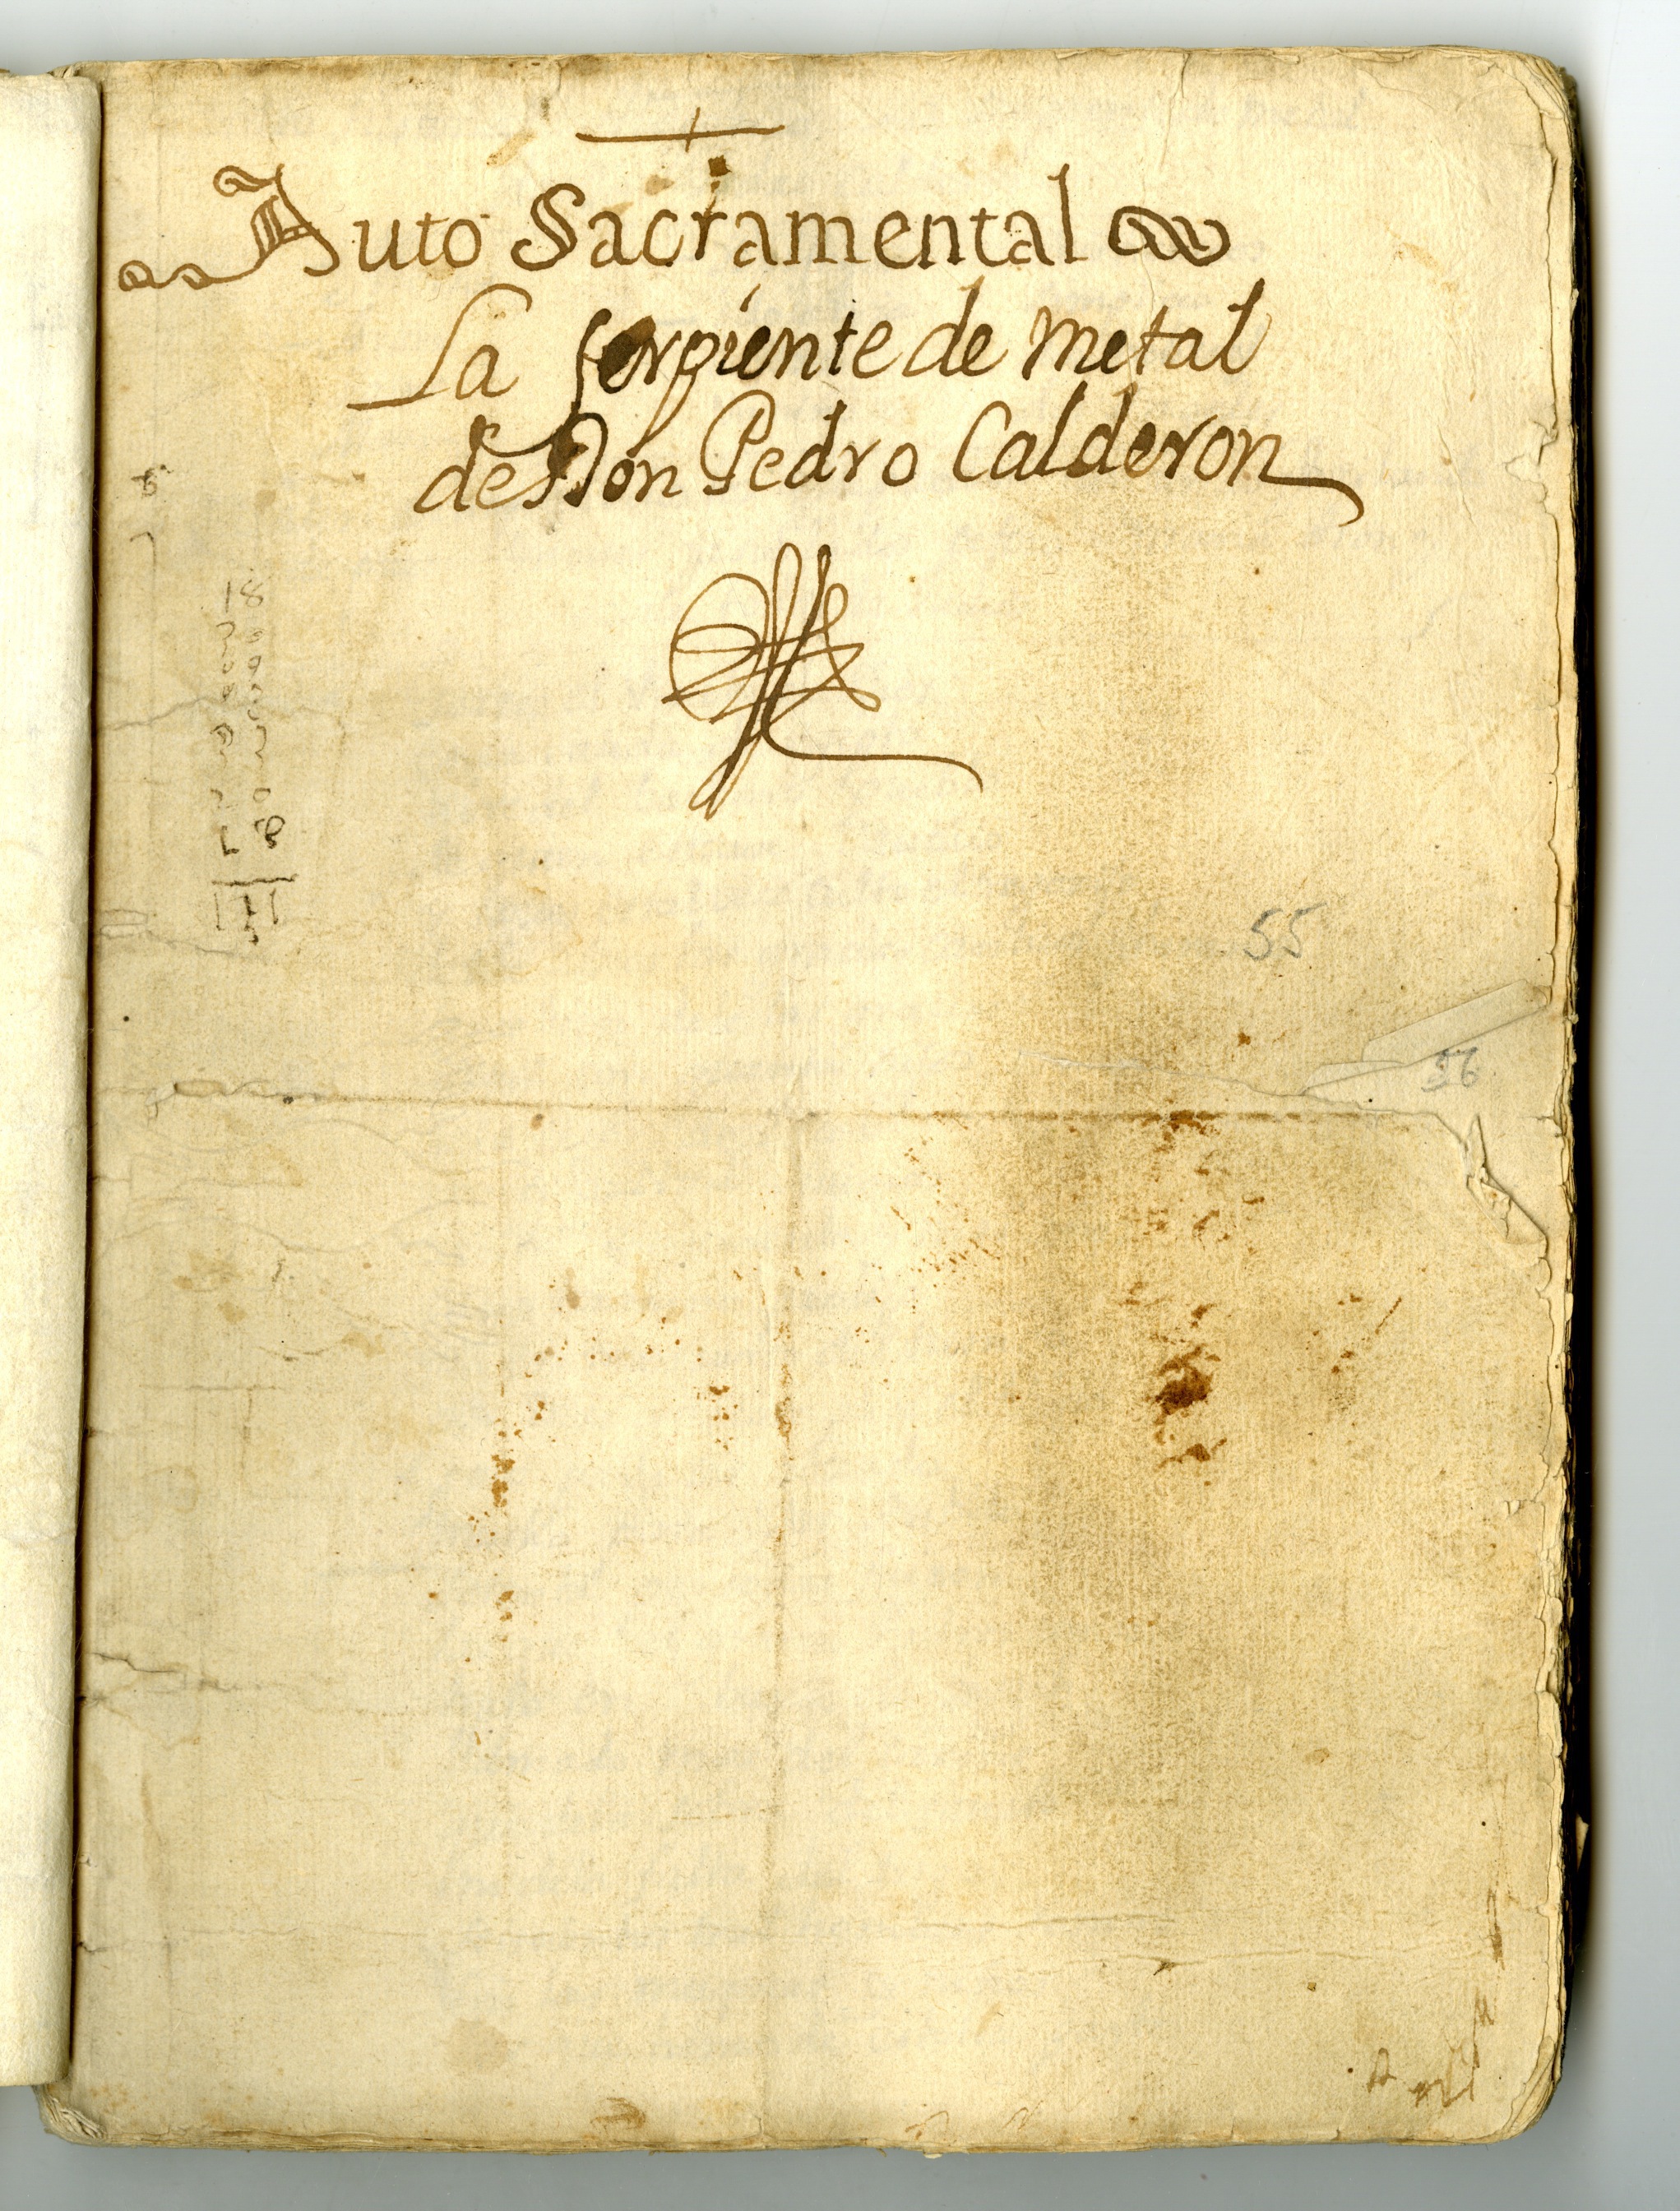 Auto Sacramental
La serpiente de metal
de Don Pedro Calderon
18
18
111
55
56